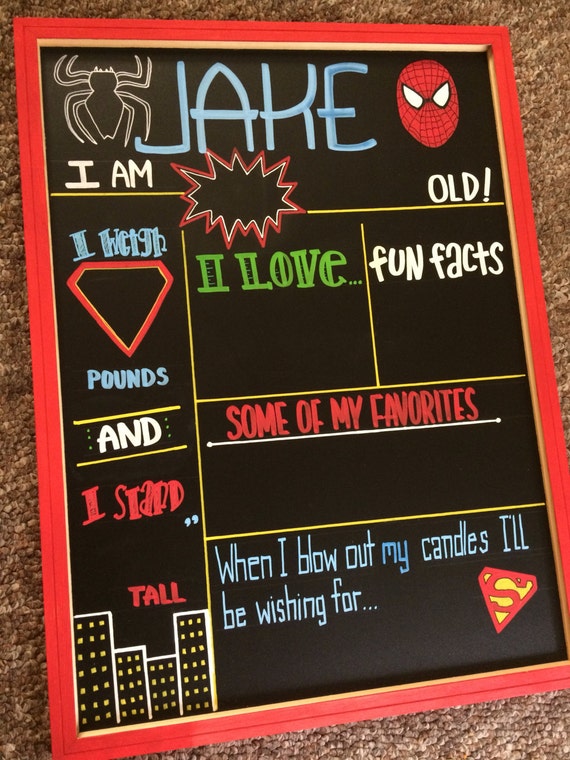 JAKE
I AM
OLD!
I Weigh
POUNDS
AND
I STAND
"
TALL
I LOVE...
FUN FACTS
SOME OF MY FAVORITES
When I blow out my candles I'll
be wishing for...
S